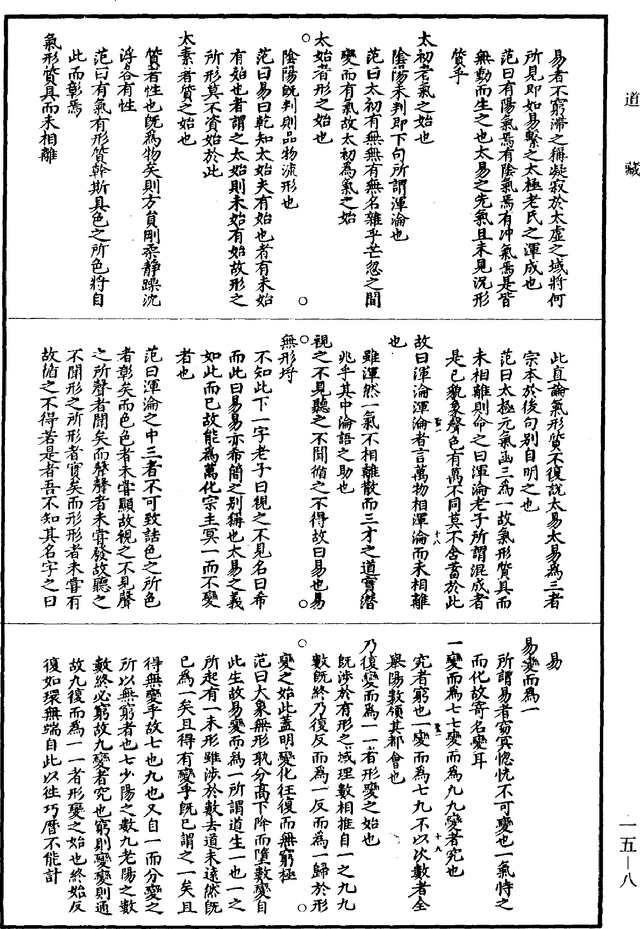 道藏
易者不窮滯之稱凝寂於太虛之域將何
所見即如易繫之太極老氏之渾成也
范曰有陽氣焉有陰氣焉有冲氣焉是皆
無動而生之也太易之先氣且未見況形
質乎
太初者氣之始也
陰陽未判即下句所謂渾淪也
范曰太初有無無有無名雜乎芒芴之間
變而有氣故太初為氣之始
太始者形之始也
陰陽既判則品物流形也
范曰易曰乾知太始夫有始也者有未始
有始也者謂之太始則未始有始故形之
所形莫不資始於此
太素者質之始也
質者性也既為物矣則方員剛柔靜躁沈
浮各有性
范曰有氣有形質幹斯具色之所色將自
此而彰焉
氣形質具而未相離
此直論氣形質不復說太易太易為三者
宗本於後句別自明之也
范曰太極元氣函三為一故氣形質具而
未相離則命之曰渾淪老子所謂混成者
是已貌象聲色有萬不同莫不含蓄於此
故曰渾淪渾淪者言萬物相渾淪而未相離
也
雖渾然一氣不相離散而三才之道實潛
兆乎其中淪語之助也
視之不見聽之不聞循之不得故曰易也易
無形埒
不知此下一字老子曰視之不見名曰希
而此曰易易亦希簡之別稱也太易之義
如此而已故能為萬化宗主冥一而不變
者也
范曰渾淪之中三者不可致詰色之所色
者彰矣而色色者未嘗顯故視之不見聲
之所聲者聞矣而聲聲者未嘗發故聽之
不聞形之所形者實矣而形形者未嘗有
故循之不得若是者吾不知其名字之曰
易
易變而為一
所謂易者窈冥惚恍不可變也一氣恃之
而化故寄名變耳
一變而為七七變而為九九變者究也
究者窮也一變而為七九不以次數者全
舉陽數領其都會也
乃復變而為一一者形變之始也
既涉於有形之域理數相推自一之九九
數既終乃復反而為一反而為一歸於形
變之始此蓋明變化往復而無窮極
范曰大象無形孰分高下降而墮數變自
此生故易變而為一所謂道生一也一之
所起有一未形雖涉於數去道未遠然既
已為一矣且得有變乎既已謂之一矣且
得無變乎故七也九也又自一而分變之
所以無窮者也七少陽之數九老陽之數
數終必窮故九變者究也窮則變變則通
故九復而為一一者形變之始也終始反
復如環無端自此以往巧曆不能計
一五—八